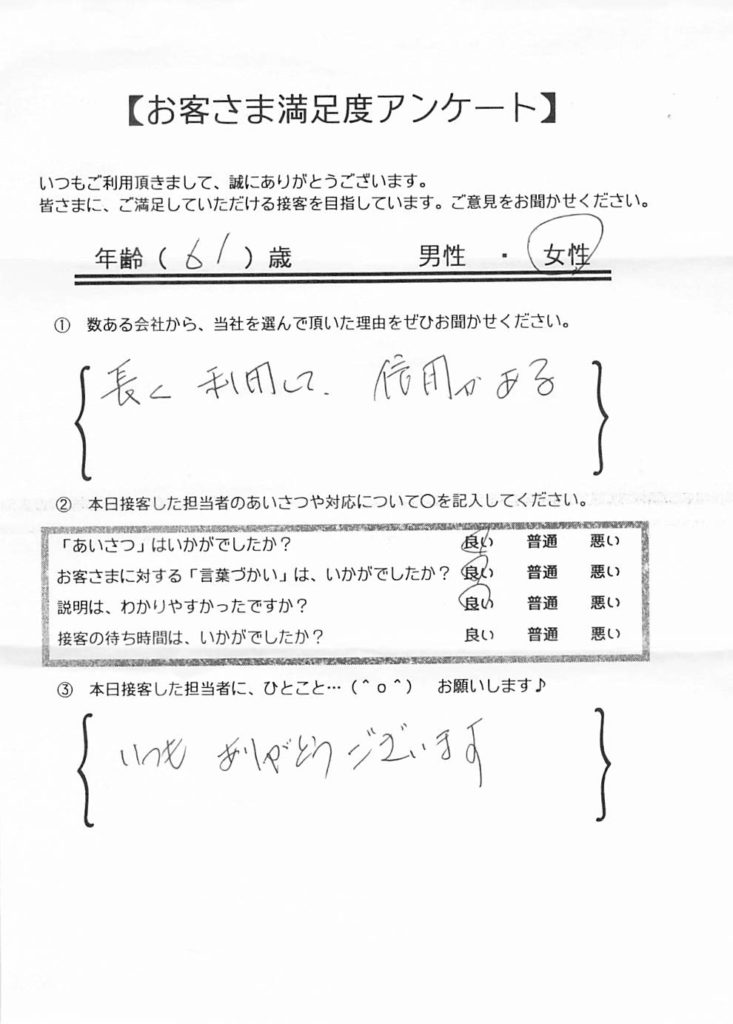 【お客さま満足度アンケート】
いつもご利用頂きまして、誠にありがとうございます。
皆さまに、ご満足していただける接客を目指しています。ご意見をお聞かせください。
年齢（61）歳　男性・女性
① 数ある会社から、当社を選んで頂いた理由をぜひお聞かせください。
長く利用して、信用がある
② 本日接客した担当者のあいさつや対応について〇を記入してください。
「あいさつ」はいかがでしたか？ 良い 普通 悪い
お客さまに対する「言葉づかい」は、いかがでしたか？ 良い 普通 悪い
説明は、わかりやすかったですか？ 良い 普通 悪い
接客の待ち時間は、いかがでしたか？ 良い 普通 悪い
③ 本日接客した担当者に、ひとこと…（＾ｏ＾） お願いします♪
いつも ありがとうございます